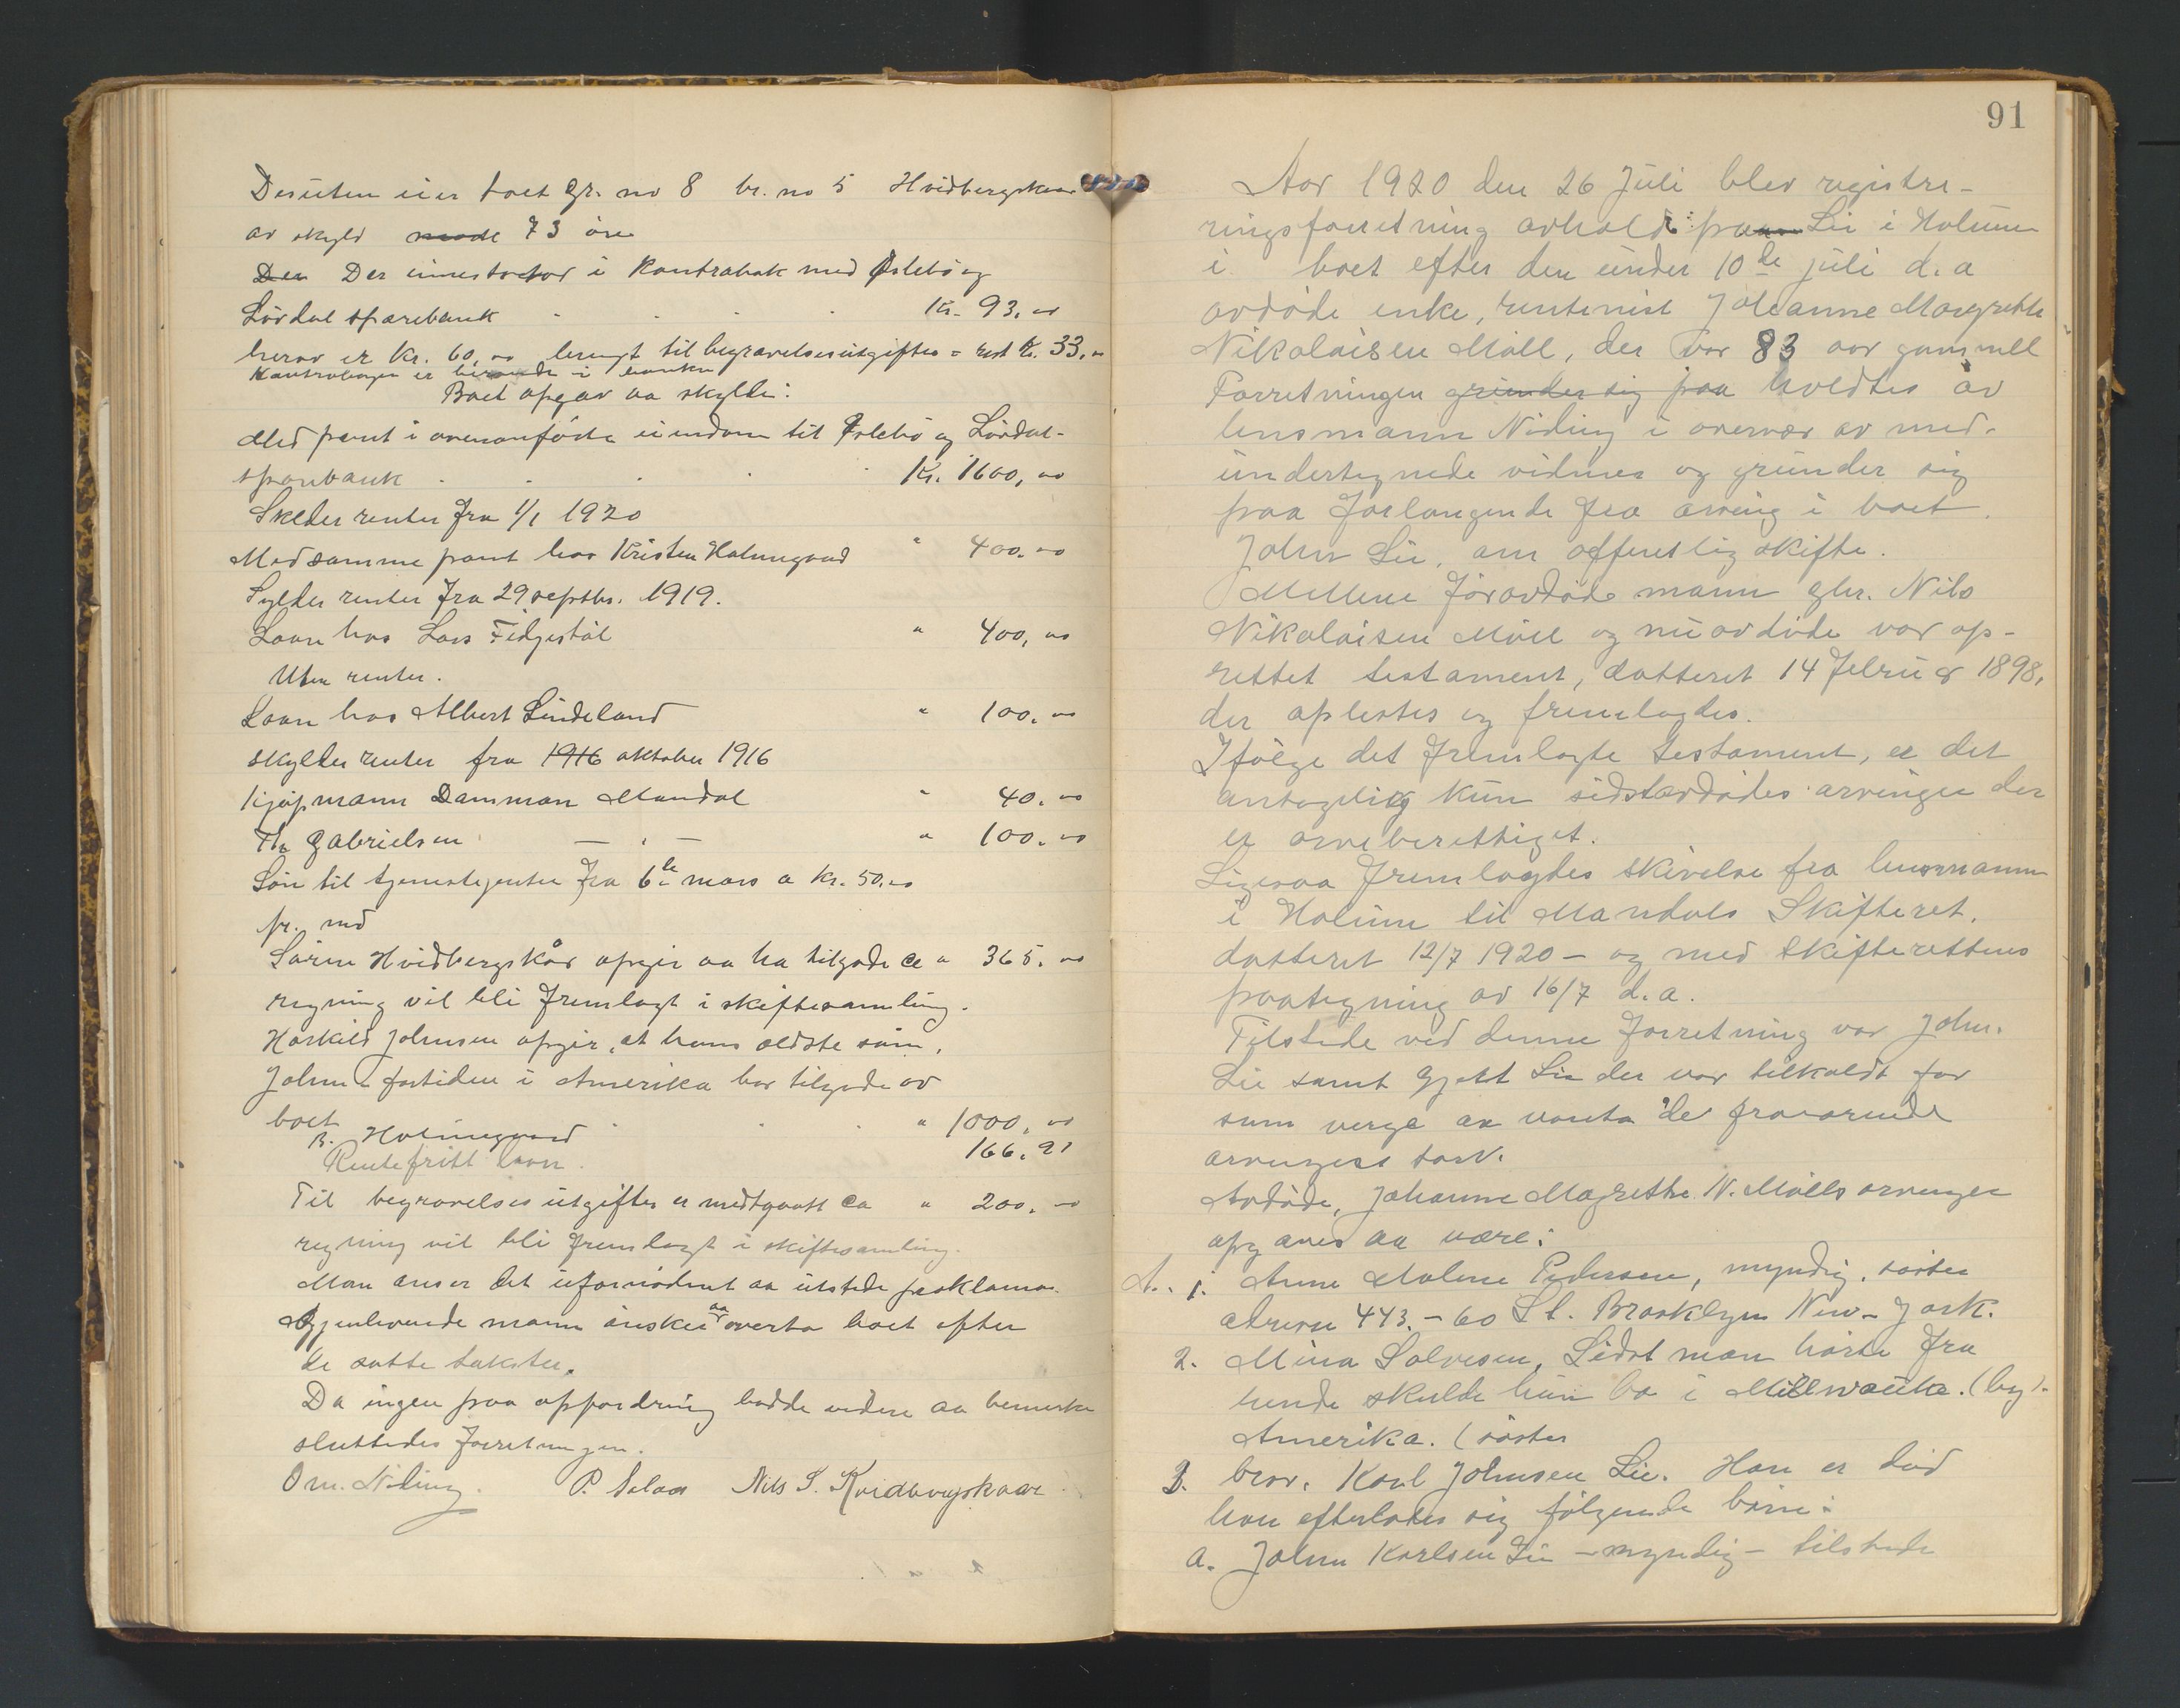 Desuten eier boet gr. no 8 br. no 5 Hvidbergskaar
av skyld mark 73 öre
Den Der innestaar i Kontrabok med Öslebö og
Lövdal sparebank Kr. 93,00
herav er Kr. 60,00 brugt til begravelsesutgifter = rest Kr. 33,00
Kontraboken er beroende i banken
Boet opgav aa skylde:
Med pant i ovenanförte eiendom til Öslebö og Lövdal-
sparebank Kr. 1600,00
Skylder renter fra 1/1 1920
Med samme pant hos Kristen Holmegaard " 400,00
Sylder renter fra 29 septbr. 1919.
Laan hos Lars Fidjestöl " 400,00
Uten renter.
Laan hos Albert Lindeland " 100,00
skylder renter fra 1916 oktober 1916
Kjöpmann Damman Mandal " 40,00
Th. Gabrielsen — " — " 100,00
Lön til tjenestejenter fra 6te mars a kr. 50,00
pr. md
Sörine Hvidbergskår opgir aa ha tilgode ca " 365,00
regning vil bli fremlagt i skiftesamling.
Haskild Johnsen opgir, at hans ældste sönn,
John fortiden i Amerika har tilgode av
boet " 1000,00
B. Holmegaard 166,91
Rentefritt laan.
Til begravelsesutgifter er medtgaatt ca " 200,00
regning vil bli fremlagt i skiftesamling.
Man anser det ufornödent aa utstede proklama.
Gjenlevende mann önsker aa overta boet efter
de satte takster.
Da ingen paa oppfordring hadde videre aa bemerke
sluttedes forretningen.
Om. Nöding. P. Selaas Nils S. Kvidbergskaar
91
Aar 1920 den 26 Juli blev registre-
ringsforretning avholdt paa Lie i Holum
i boet efter den under 10de juli d.a
avdöde enke, rentenist Johanne Margrethe
Nikolaisen Möll, der var 83 aar gammell
Forretningen grunder sig paa holdtes av
lensmann Nöding i overvær av med-
undertegnede vidner og grunder sig
paa forlangende fra arving i boet
John Lie, om offentlig skifte.
Mellem föravdöde mann gbr. Nils
Nikolaisen Möll og nu avdöde var op-
rettet testament, datteret 14 februar 1898,
der oplestes og fremlagdes.
Ifölge det fremlagte testament, er det
antagelig kun sidstavdödes arvinger der
er arveberettiget.
Ligesaa fremlagdes skivelse fra lensmann
i Holum til Mandals Skifteret.
datteret 12/7 1920 – og med Skifterettens
paategning av 16/7 d.a.
Tilstede ved denne forretning var John.
Lie samt Gjett Lie der var tilkaldt for
sum verge aa vareta de fraværende
arvingers tarv.
Avdöde, Johanne Magrethe N. Mölls arvinger
opgaves aa være:
A. 1. Anne Malene Pedersen, myndig, söster
adresse 443. – 60 St. Brooklyn New-York.
2. Mina Salvesen, Sidst man hörte fra
hende skulde hun bo i Millwauke. (by).
Amerika. (söster
3. bror. Karl Johnsen Lie. Han er död
han efterlater sig fölgende börn:
a. John Karlsen Lie – myndig – tilstede